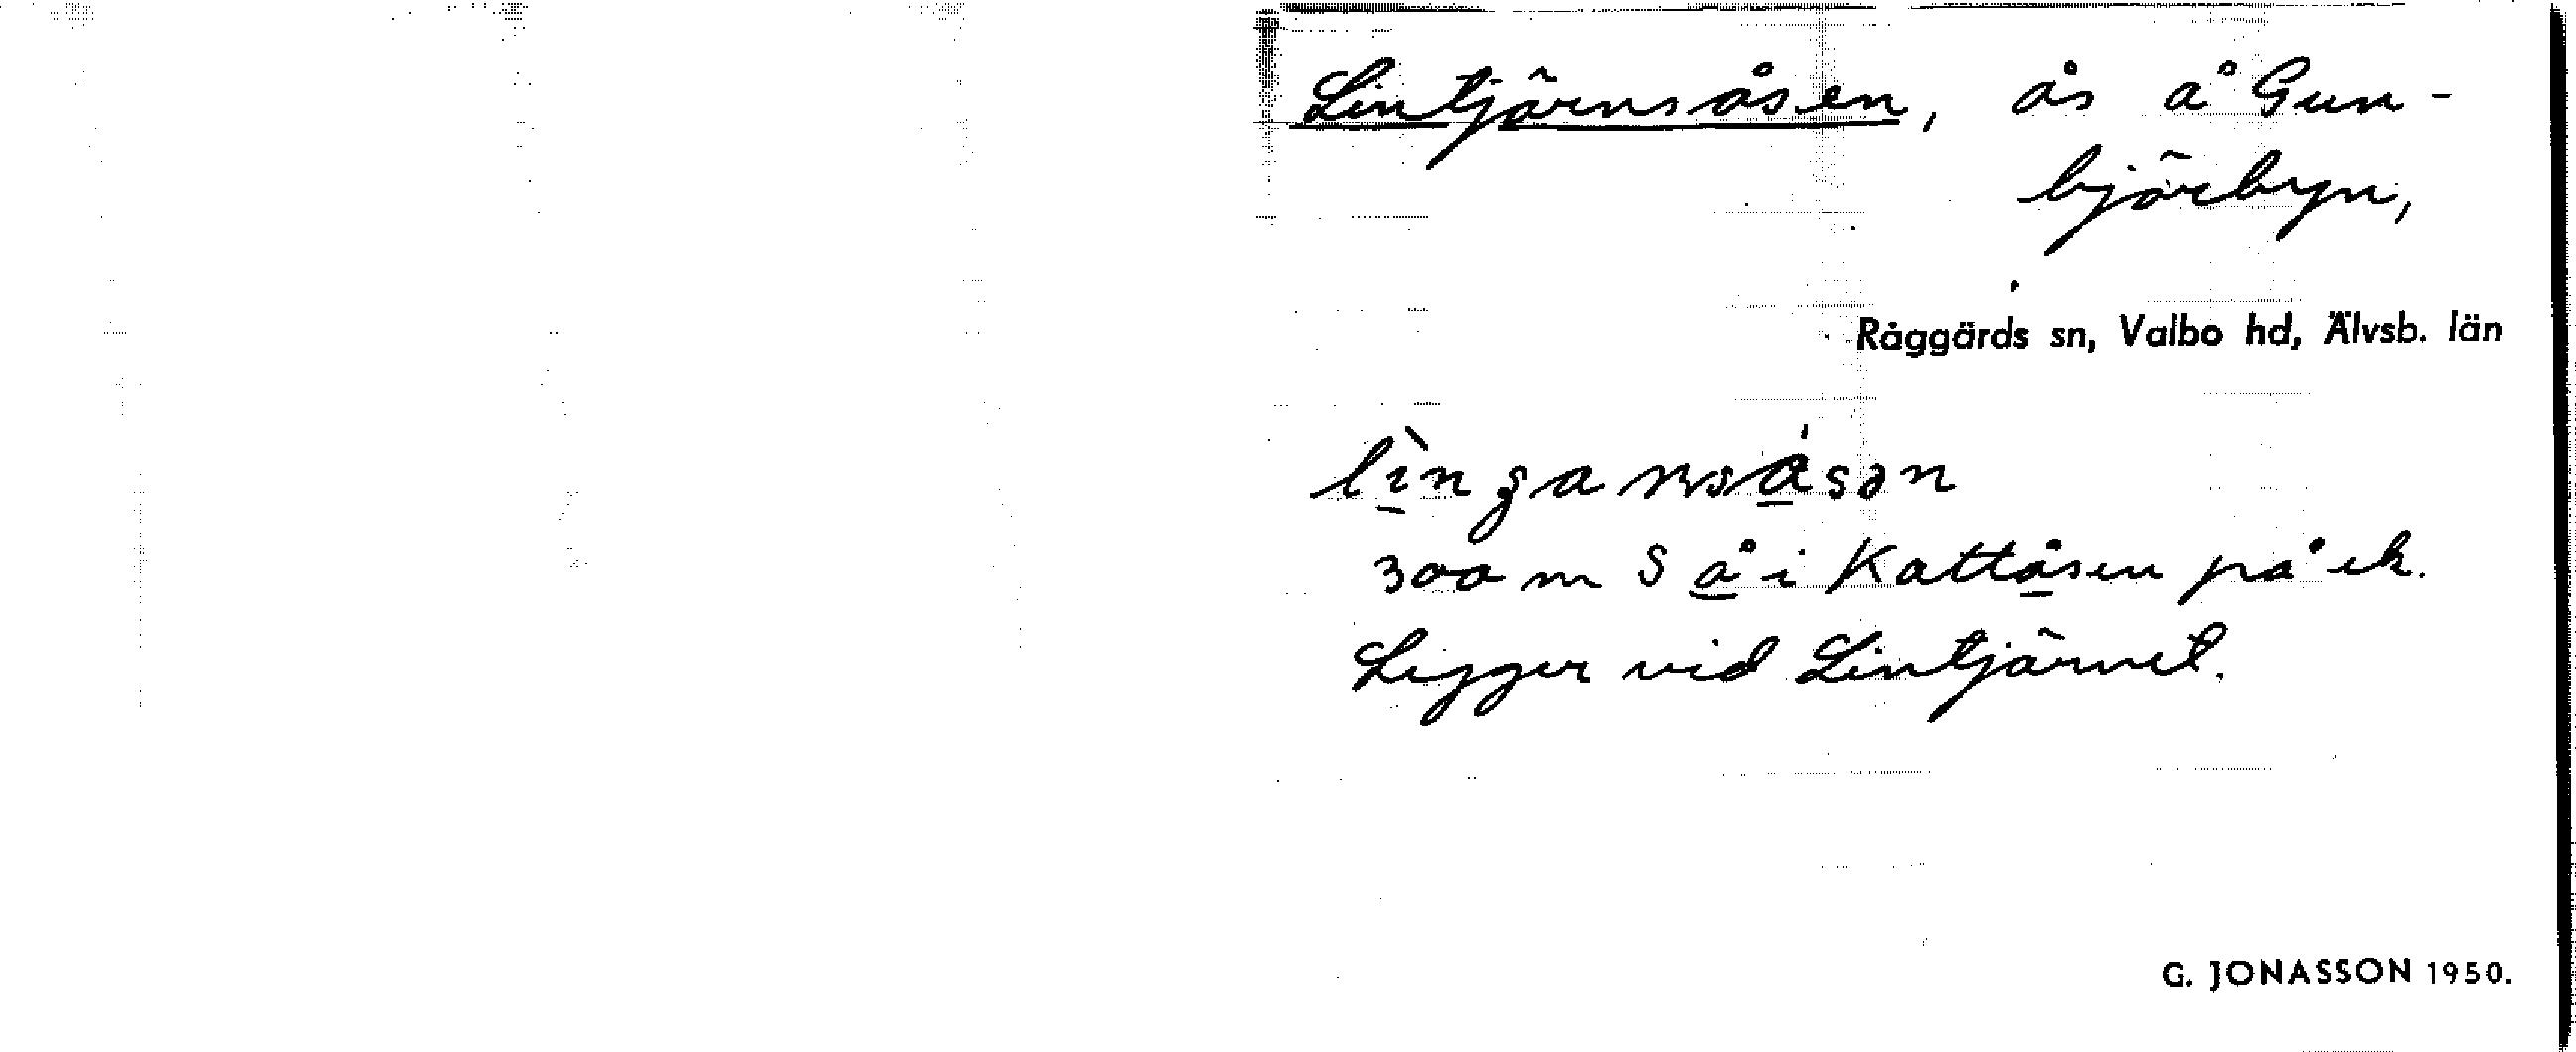 Lintjärnsåsen, ås å Gun-
björbyn,
Råggärds sn, Valbo hd, Älvsb. län
300 m S å i Kattåsen på ek.
Ligger vid Lintjärnet.
G. JONASSON 1950.